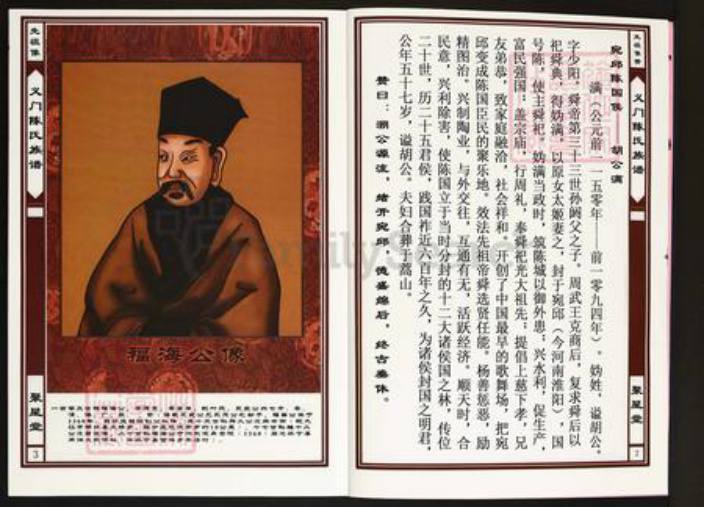 先祖像赞
义门陈氏族谱
聚星堂
2
宛邱陈国侯——胡公满
满（公元前一一五零年——前一零九四年）。妫姓，谥胡公，
字少阳，舜帝第三十三世孙阏父之子。周武王克商后，复求舜后以
祀舜典，得妫满，以原女太姬妻之，封于宛邱（今河南淮阳），国
号陈，使主舜祀。妫满当政时，筑陈城以御外患；兴水利，促生产，
富民强国；盖宗庙，行周礼，奉舜祀光大祖先；提倡上慈下孝，兄
友弟恭，致家庭融洽，社会祥和，开创了中国最早的歌舞场，把宛
邱变成陈国臣民的聚乐地。效法先祖帝舜选贤任能。杨善惩恶，励
精图治。兴制陶业，与外交往，互通有无，活跃经济。顺天时，合
民意，兴利除害，使陈国立于当时分封的十二大诸侯国之林，传位
二十世，历二十五君侯，践国祚近六百年之久，为诸侯封国之明君，
公年五十七岁，谥胡公。夫妇合葬于蒿山。
赞曰：溯公源流，绪开宛邱，德盛绵后，终古垂休。
先祖像
义门陈氏族谱
聚星堂
3
福海公像
FamilySearch